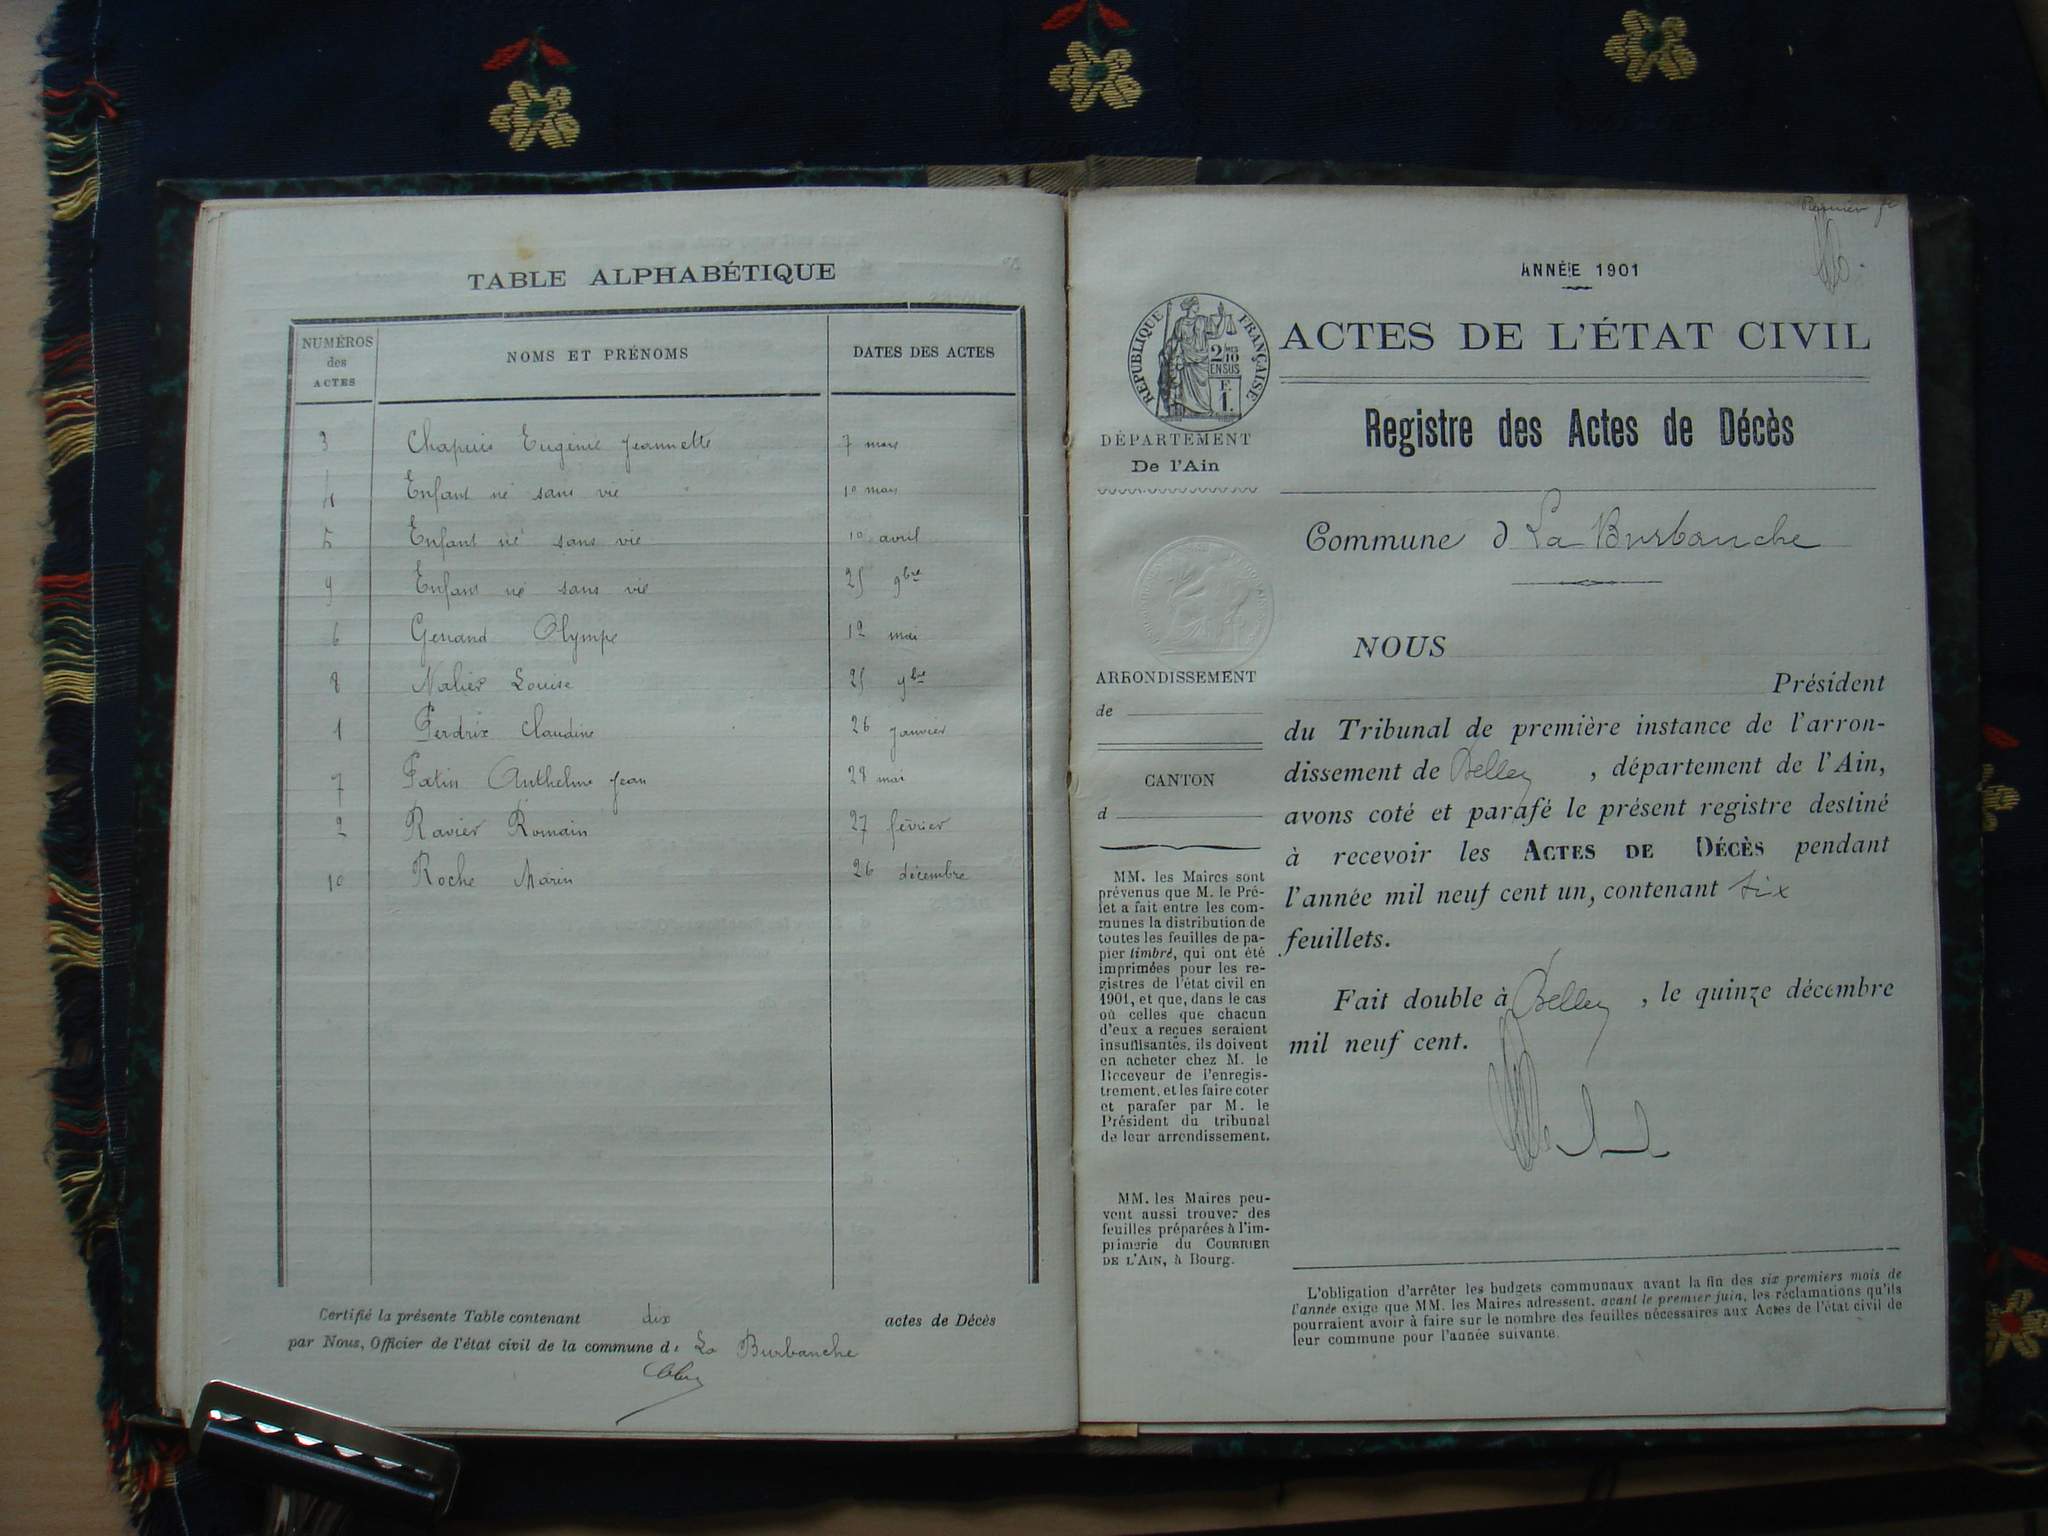 TABLE ALPHABÉTIQUE
NUMÉROS des ACTES NOMS ET PRÉNOMS DATES DES ACTES
3 Chapuis Eugénie Jeannette 7 mars
4 Enfant né sans vie 10 mars
5 Enfant né sans vie 10 avril
9 Enfant né sans vie 25 9bre
6 Genand Olympe 12 mai
8 Nalier Louise 25 9bre
1 Perdrix Claudine 26 janvier
7 Patin Anthelme Jean 28 mai
2 Ravier Romain 27 février
10 Roche Marin 26 décembre
Certifié la présente Table contenant dix actes de Décès
par Nous, Officier de l'état civil de la commune de La Burbanche
Premier
ANNÉE 1901
RÉPUBLIQUE FRANÇAISE
2 10
EN SUS
F.
1.
ACTES DE L'ÉTAT CIVIL
Registre des Actes de Décès
DÉPARTEMENT
De l'Ain
Commune d La Burbanche
ARRONDISSEMENT
de
CANTON
d
MM. les Maires sont
prévenus que M. le Pré-
fet a fait entre les com-
munes la distribution de
toutes les feuilles de pa-
pier timbré, qui ont été
imprimées pour les re-
gistres de l'état civil en
1901, et que, dans le cas
où celles que chacun
d'eux a reçues seraient
insuffisantes, ils doivent
en acheter chez M. le
Receveur de l'enregis-
trement, et les faire coter
et parafer par M. le
Président du tribunal
de leur arrondissement.
MM. les Maires peu-
vent aussi trouver des
feuilles préparées à l'im-
primerie du COURRIER
DE L'AIN, à Bourg.
NOUS
Président
du Tribunal de première instance de l'arron-
dissement de Belley, département de l'Ain,
avons coté et parafé le présent registre destiné
à recevoir les ACTES DE DÉCÈS pendant
l'année mil neuf cent un, contenant six
feuillets.
Fait double à Belley, le quinze décembre
mil neuf cent.
L'obligation d'arrêter les budgets communaux avant la fin des six premiers mois de
l'année exige que MM. les Maires adressent, avant le premier juin, les réclamations qu'ils
pourraient avoir à faire sur le nombre des feuilles nécessaires aux Actes de l'état civil de
leur commune pour l'année suivante.